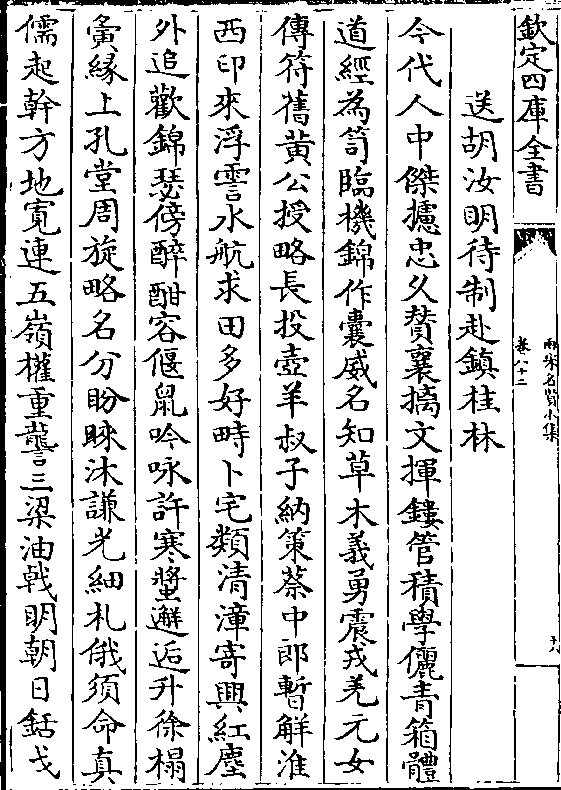 欽定四庫全書
兩宋名賢小集
卷八十二
九
送胡汝明待制赴鎮桂林
今代人中傑攄忠久贊襄摛文揮鏤管積學儷青箱體
道經為笥臨機錦作囊威名知草木義勇震戎羌元女
傳符舊黄公授略長投壺羊叔子納策蔡中郎暫解淮
西印來浮霅水航求田多好畤卜宅類清漳寄興紅塵
外追歡錦瑟傍醉酣容偃鼠吟咏許寒螿邂逅升徐榻
夤緣上孔堂周旋略名分盼睞沐謙光細札俄須命真
儒起幹方地寛連五嶺權重讋三梁油㦸明朝日銛戈